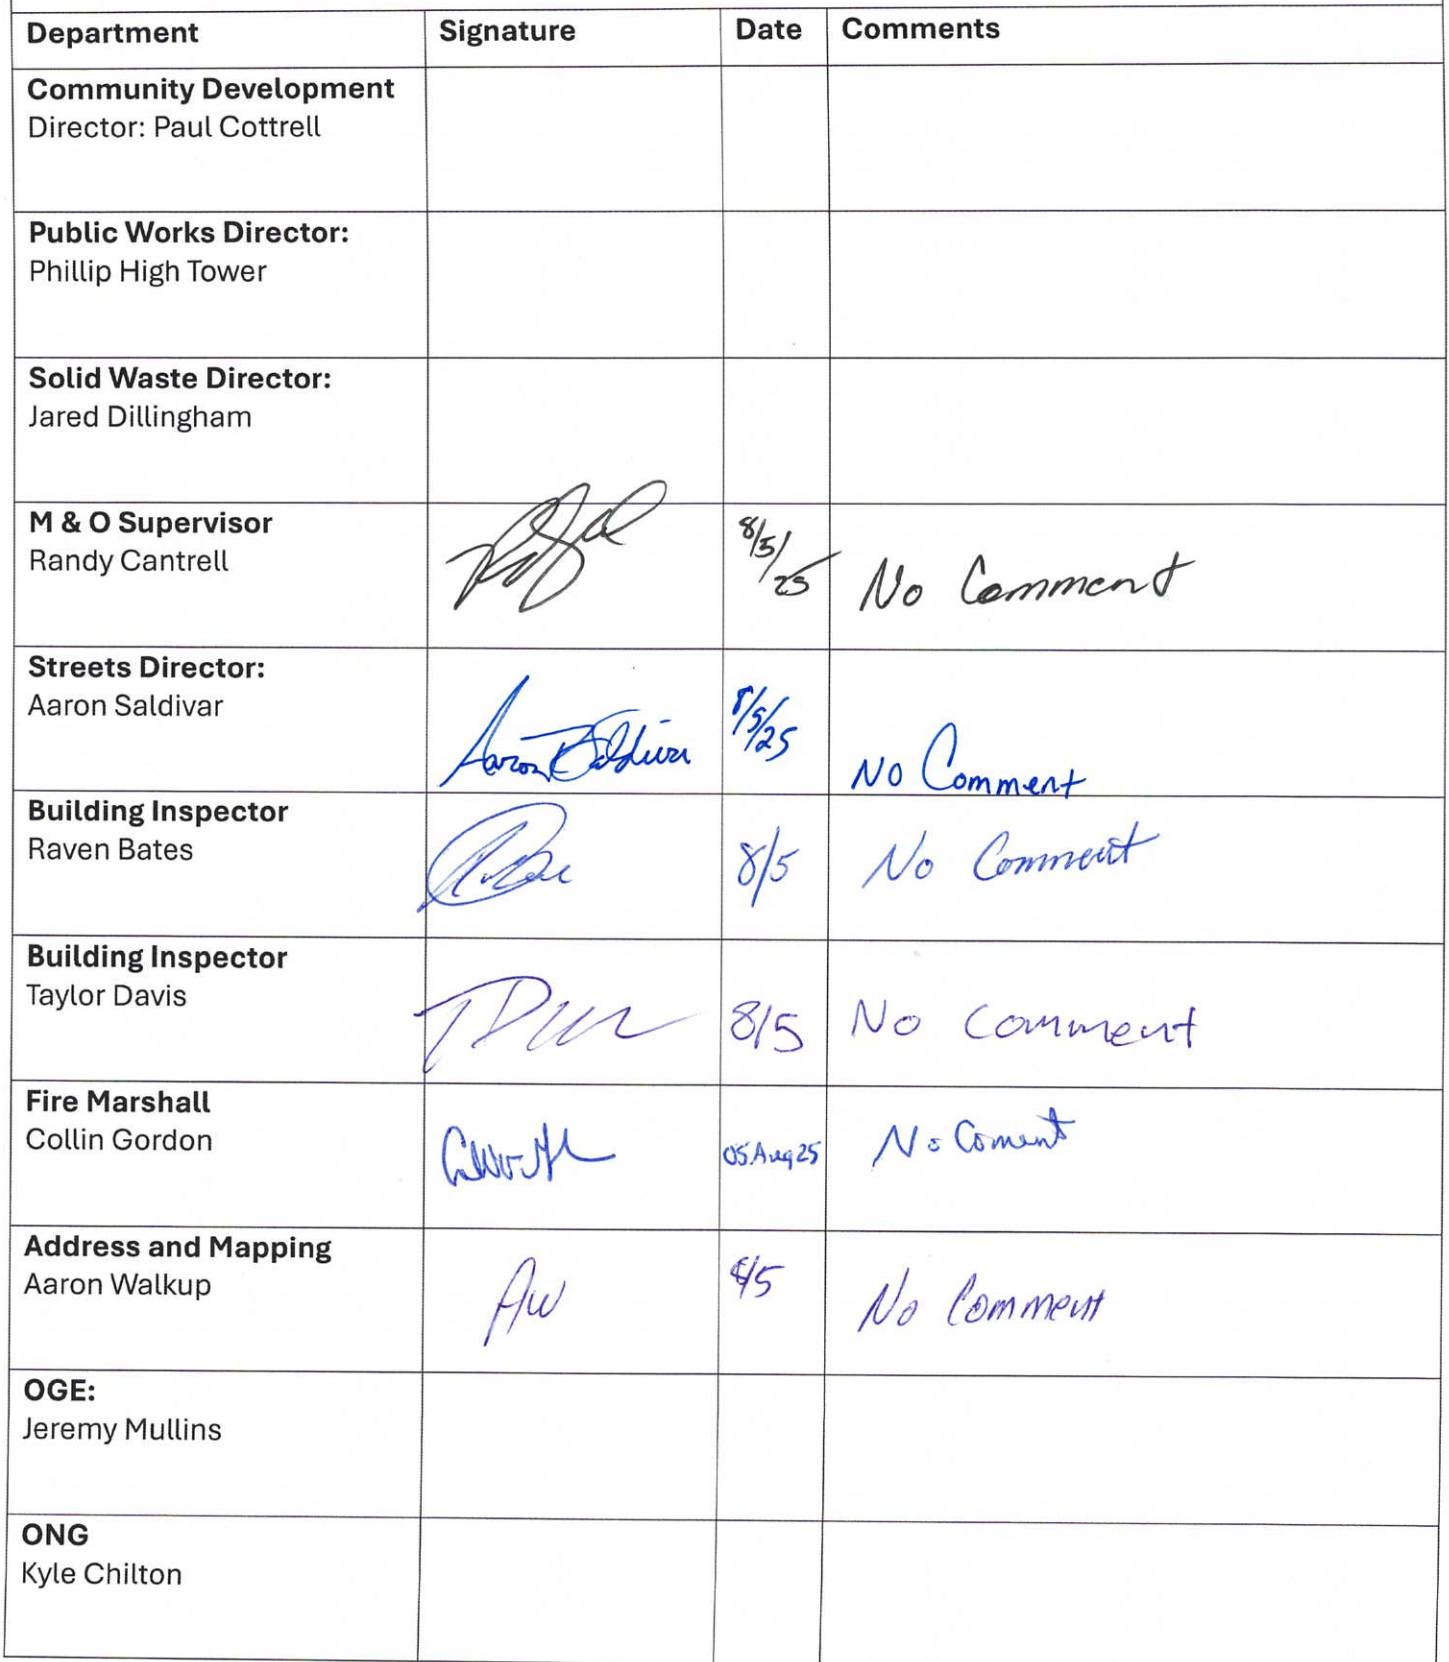 Department Signature Date Comments
Community Development
Director: Paul Cottrell
Public Works Director:
Phillip High Tower
Solid Waste Director:
Jared Dillingham
M & O Supervisor
Randy Cantrell
8/5/25
No Comment
Streets Director:
Aaron Saldivar
Aaron Saldivar
8/5/25
No Comment
Building Inspector
Raven Bates
8/5
No Comment
Building Inspector
Taylor Davis
8/5
No Comment
Fire Marshall
Collin Gordon
05Aug25
No Coment
Address and Mapping
Aaron Walkup
AW
8/5
No Comment
OGE:
Jeremy Mullins
ONG
Kyle Chilton